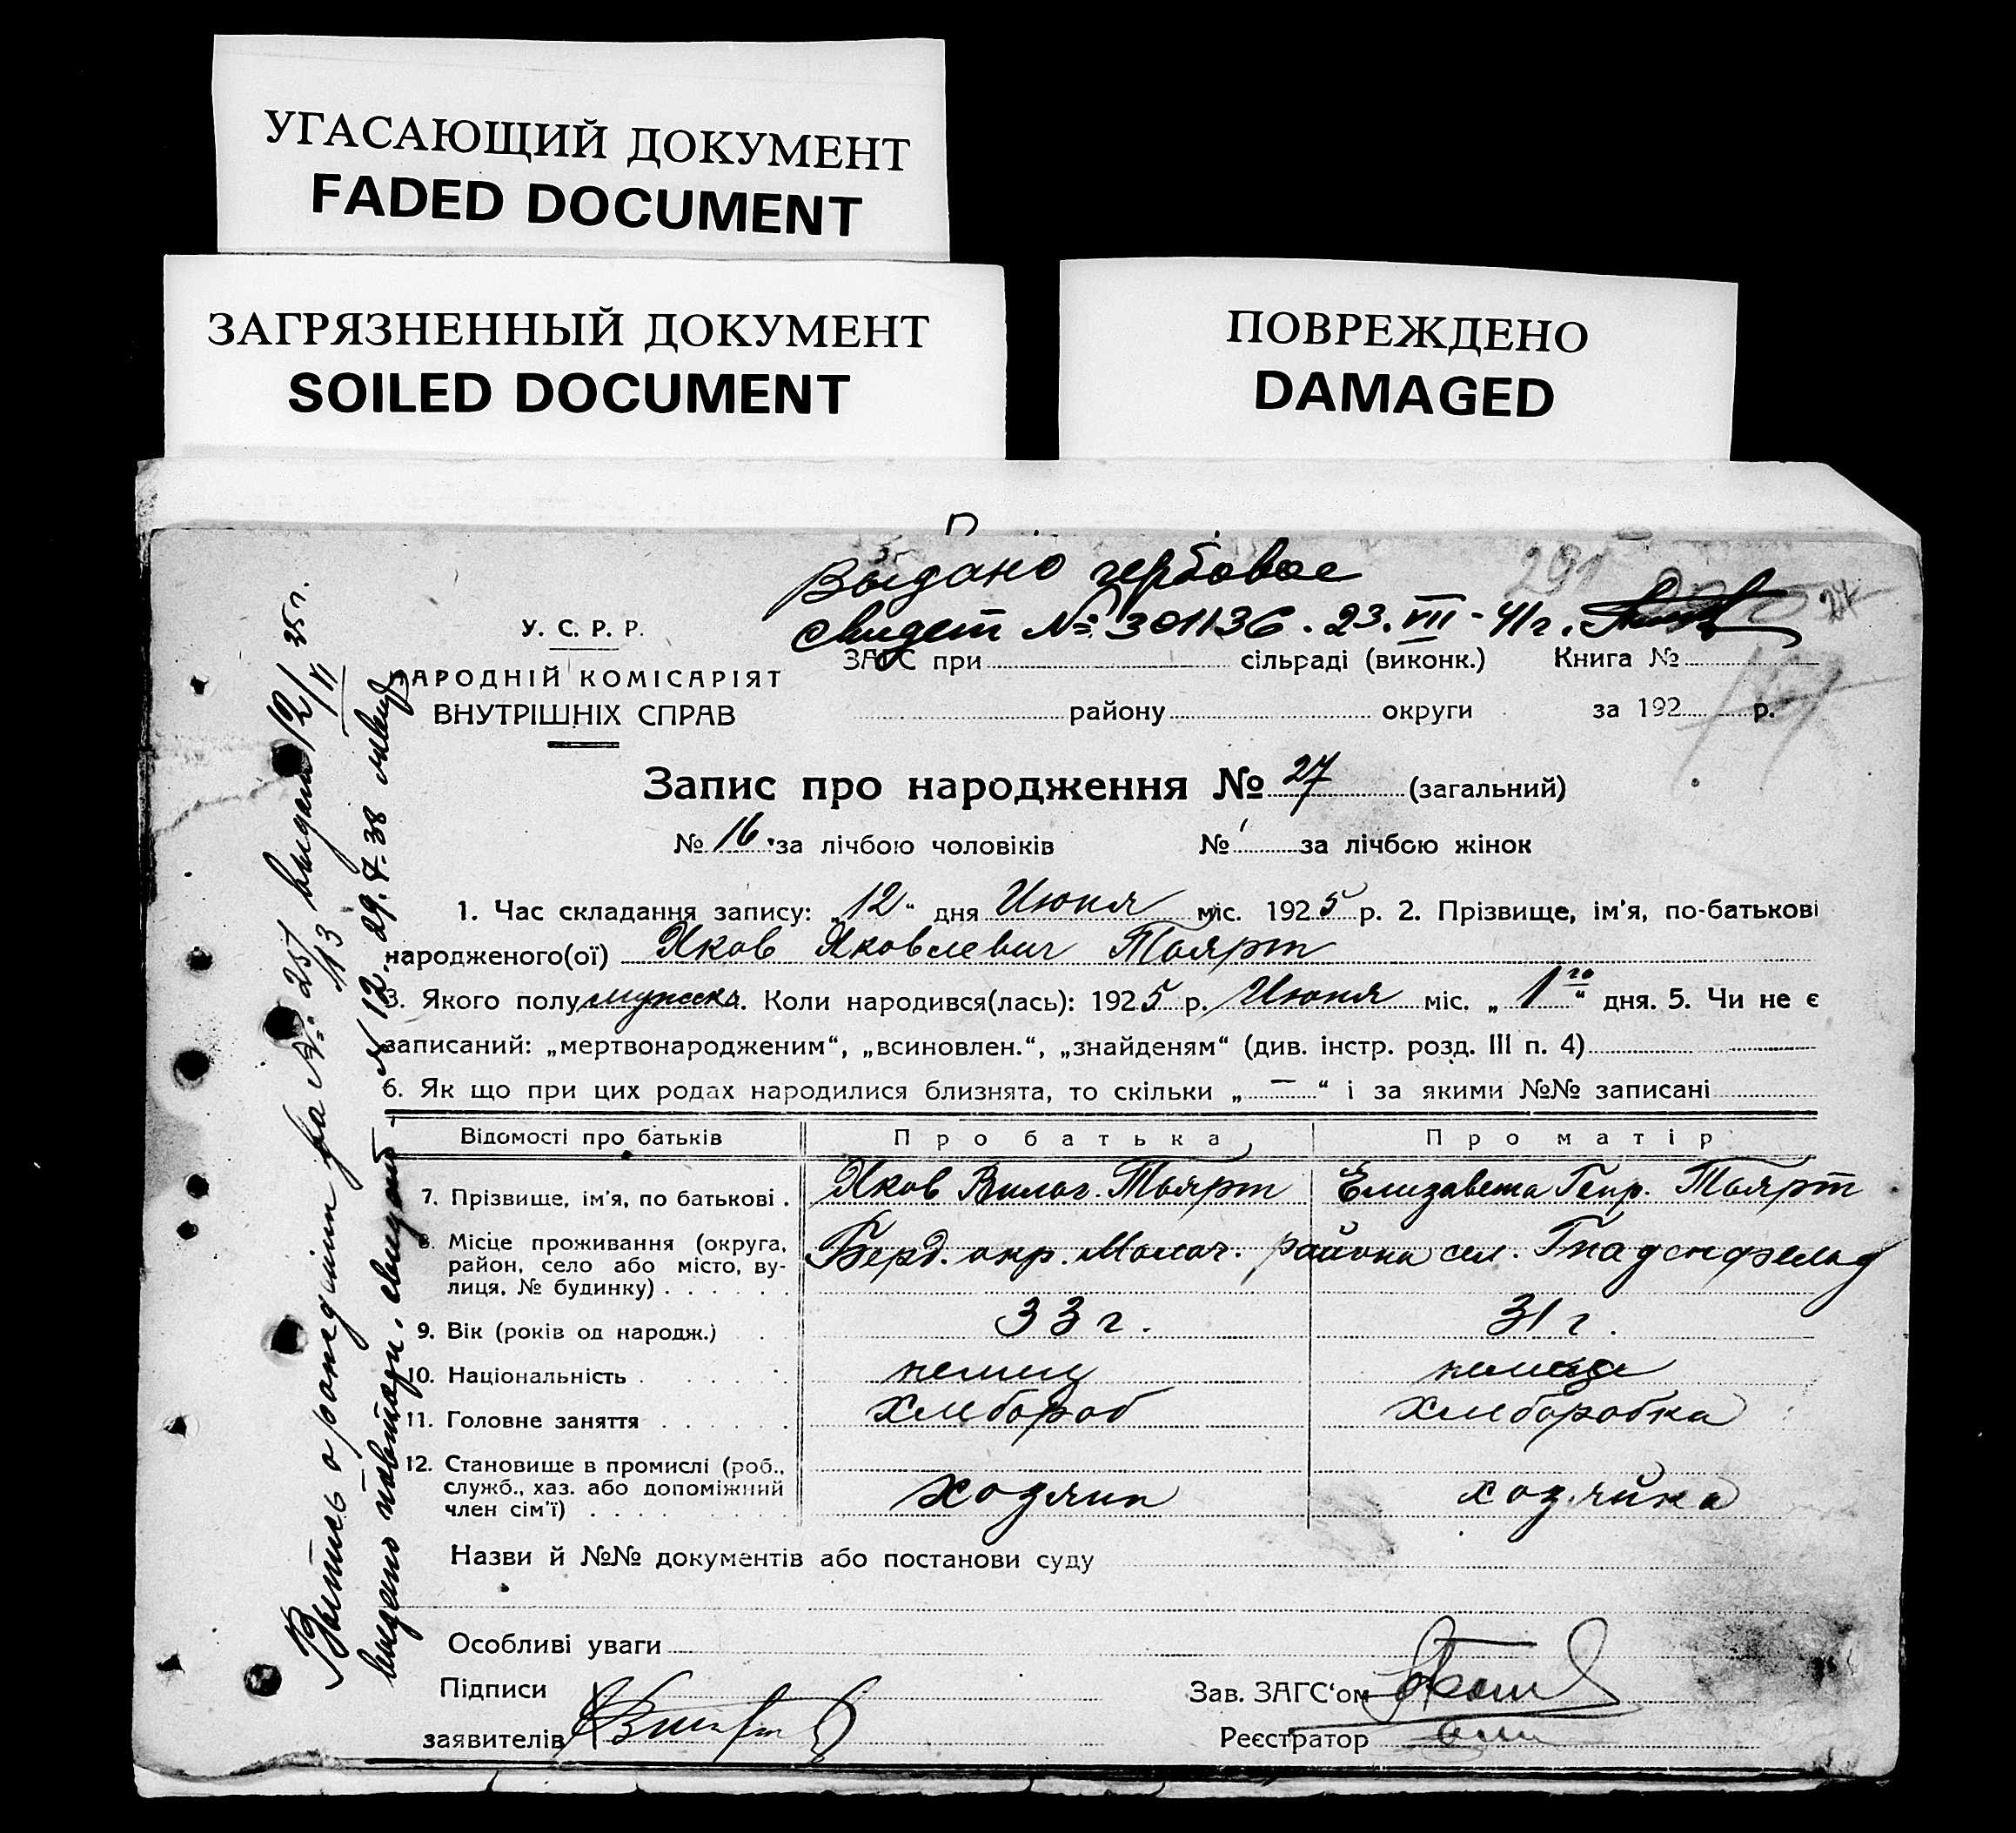 УГАСАЮЩИЙ ДОКУМЕНТ
FADED DOCUMENT
ЗАГРЯЗНЕННЫЙ ДОКУМЕНТ
SOILED DOCUMENT
ПОВРЕЖДЕНО
DAMAGED
Выдано гербовое
свидет № 301136. 23.VII-41г.
291
У. С. Р. Р.
НАРОДНІЙ КОМІСАРІЯТ
ВНУТРІШНІХ СПРАВ
ЗАГС при сільраді (виконк.) Книга №
району округи за 192 р.
Запис про народження № 27 (загальний)
№ 16. за лічбою чоловіків № за лічбою жінок
1. Час складання запису: „12“ дня Июня міс. 1925 р. 2. Прізвище, ім'я, по-батькові
народженого(ої) Яков Яковлевич Тоярт
3. Якого полу мужск. 4. Коли народився(лась): 1925 р. Июня міс. „1го“ дня. 5. Чи не є
записаний: „мертвонародженим“, „всиновлен.“, „знайденям“ (див. інстр. розд. III п. 4)
6. Як що при цих родах народилися близнята, то скільки „—“ і за якими №№ записані
Відомості про батьків Про батька Про матір
7. Прізвище, ім'я, по батькові . Яков Вилог. Тоярт Елизавета Генр. Тоярт
8. Місце проживання (округа, район, село або місто, вулиця, № будинку) Берд. окр. Молоч. района сел. Гнаденфельд
9. Вік (років од народж.) 33 г. 31 г.
10. Національність немец немка
11. Головне заняття хлебороб хлеборобка
12. Становище в промислі (роб.,
служб., хаз. або допоміжний
член сім'ї) хозяин хозяйка
Назви й №№ документів або постанови суду
Особливі уваги
Підписи
заявителів
Зав. ЗАГС'ом
Реєстратор
Выпись о рождении за № 251/113 выдана 12/VI 25 г.
выдано повторн. свидет. N 12. 29.7.38